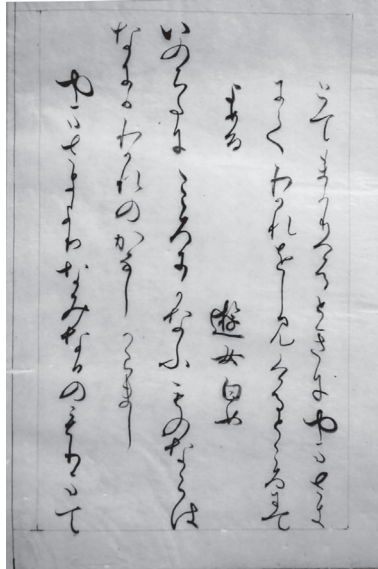 とてまかりけるときにやまさき
にてわかれをしみけるところにて
よめる
遊女白女
いのちたにこゝろにかなふものならは
なにかわかれのかなしからまし
やまさきよりかみなひのもりまて